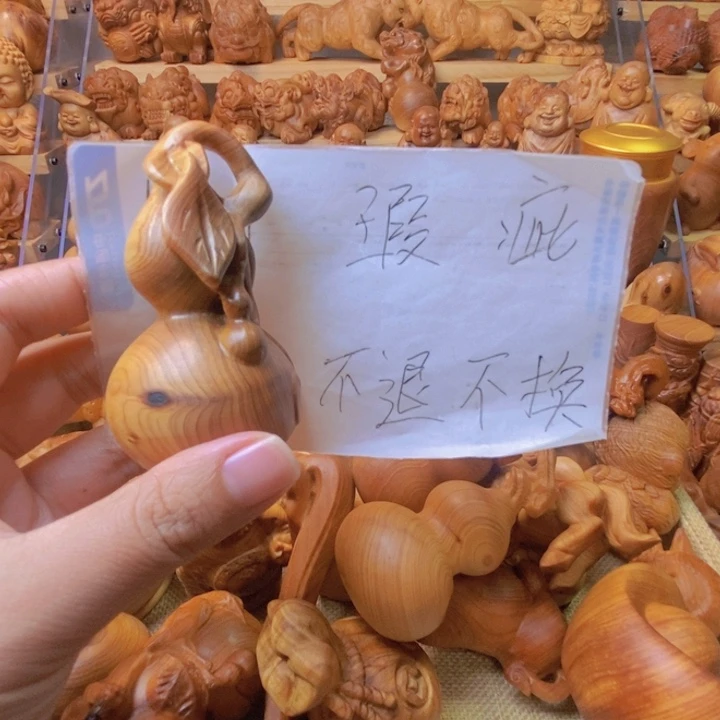 瑕疵
不退不换